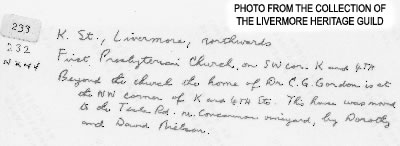 PHOTO FROM THE COLLECTION OF
THE LIVERMORE HERITAGE GUILD
233
232
K. St., Livermore, northwards
First Presbyterian Church, on SW cor. K and 4TH
Beyond the church the home of Dr. C.G. Gordon is at
the NW corner of K and 4TH Sts. This house was moved
to the Tesla Rd. nr. Concannon vineyard, by Dorothy
and David Nielsen.